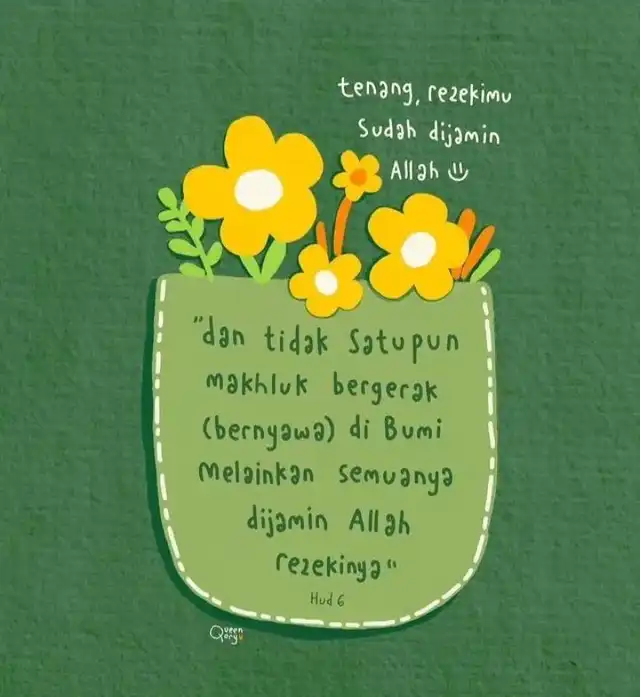 tenang, rezekimu
Sudah dijamin
Allah
"dan tidak Satupun
makhluk bergerak
(bernyawa) di Bumi
Melainkan semuanya
dijamin Allah
rezekinya"
Hud 6
Queen
Qoryu